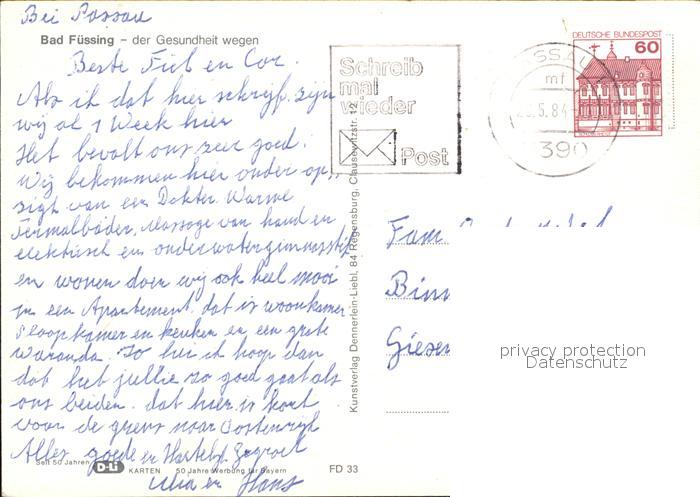 Bei Passau
Bad Füssing – der Gesundheit wegen
Beste Fieb en Cor.
Als ik dat hier schrijf zijn
wij al 1 Week hier
Het bevalt ons zeer goed.
Wij bekommen hier onder op„
zigt van een Dokter. Warme
Termalbäder, Massage van hand en
elektrisch en onderwatergimnastik
en wonen doen wij ook heel mooi
in een Apartement. dat is woonkamer
slaapkamer en keuken en een grote
Waranda. Zo ik hoop dan
dat het jullie zo goed gaat als
ons beiden. dat hier is kort
voor de grens naar Oostenrijk
Alles goede en Hartelijk gegroet
en Hans
Seit 50 Jahren D-Li KARTEN 50 Jahre Werbung für Bayern
FD 33
Kunstverlag Dennerlein-Liebl, 84 Regensburg, Clausewitzstr. 12
Schreib
mal
wieder
Post
PASSAU
mf
5.84
390
DEUTSCHE BUNDESPOST
60
Fam
Bin
Giesen
privacy protection
Datenschutz